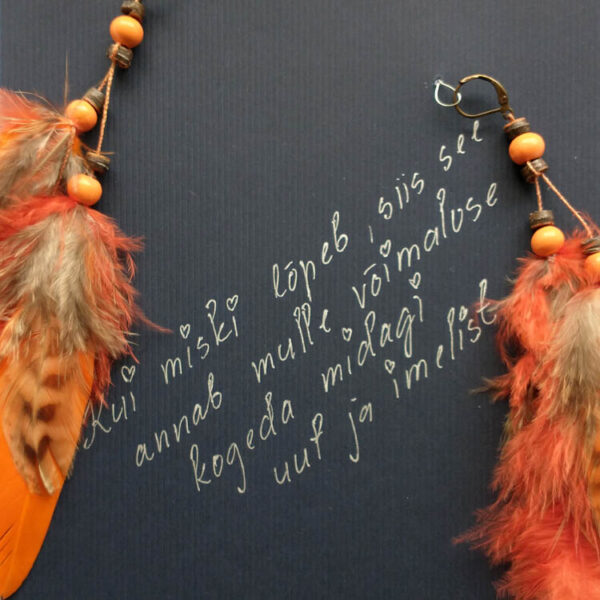 Kui miski lõpeb, siis see
annab mulle võimaluse
kogeda midagi
uut ja imelist